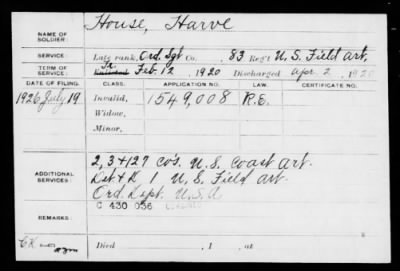 NAME OF SOLDIER: House, Harve
SERVICE: Late rank, Ord. Sgt Co. , 83 Reg't U.S. Field Art,
TERM OF SERVICE: Enlisted Feb. 12, 1920 Discharged Apr 2, 1920
DATE OF FILING. CLASS. APPLICATION NO. LAW. CERTIFICATE NO.
1926 July 19 Invalid, 1549,008 R.E.
Widow,
Minor,
ADDITIONAL SERVICES: 2, 3 + 127 cos. U.S. Coast art.
Det + 1 U.S. Field art.
Ord. Dept. U.S.A
C 430 036
REMARKS:
Died , 1 , at